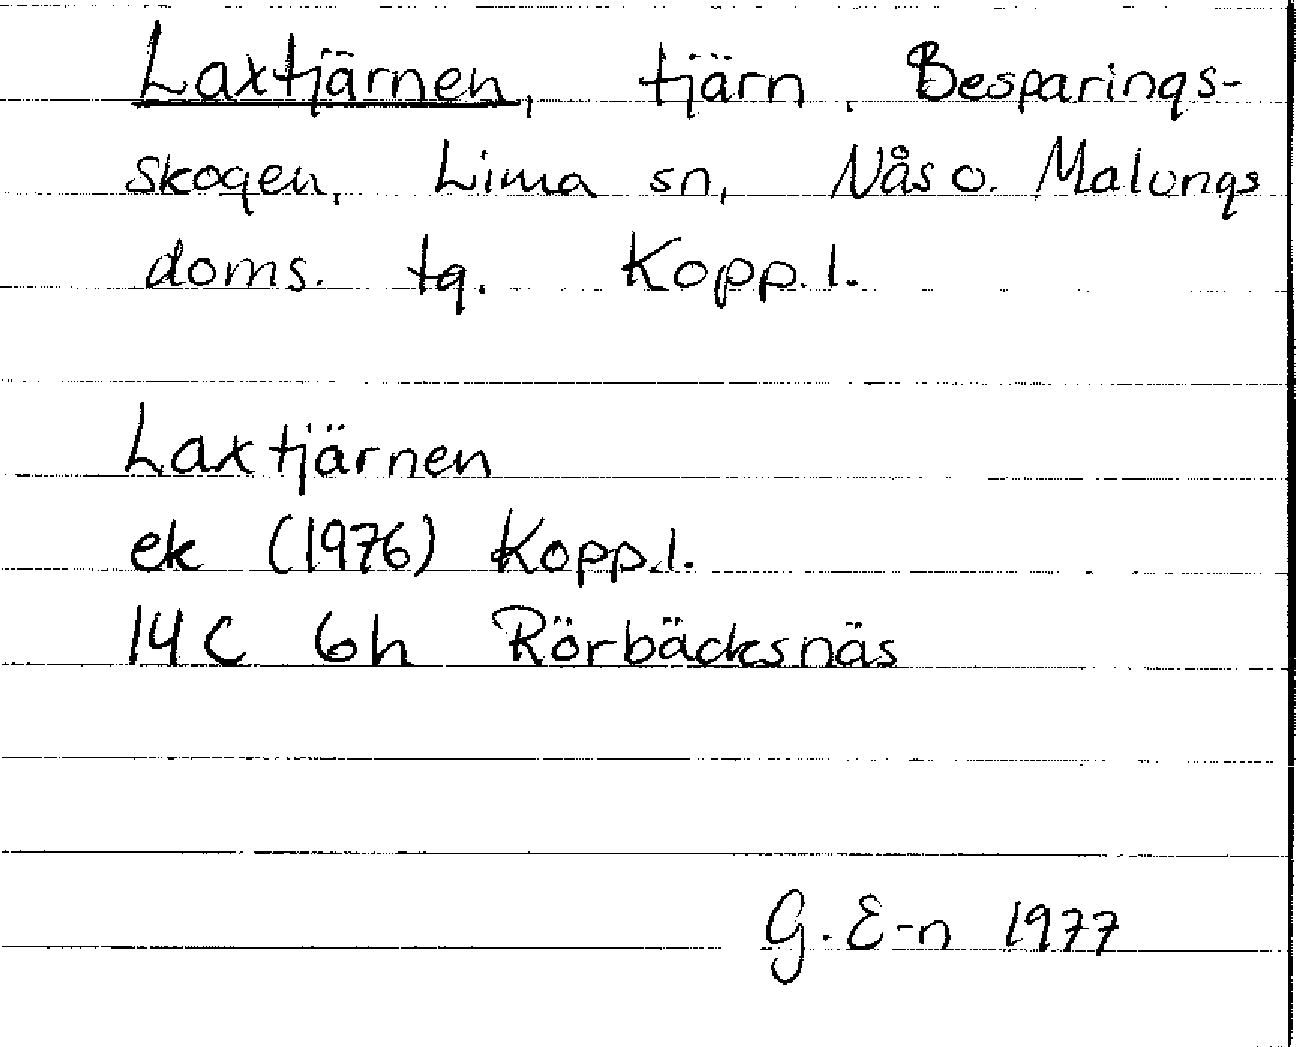 Laxtjärnen, tjärn, Besparings-
skogen, Lima sn, Nås o. Malungs
doms. tg. Kopp. l.
Laxtjärnen
ek (1976) Kopp. l.
14 C 6h Rörbäcksnäs
G. E-n 1977